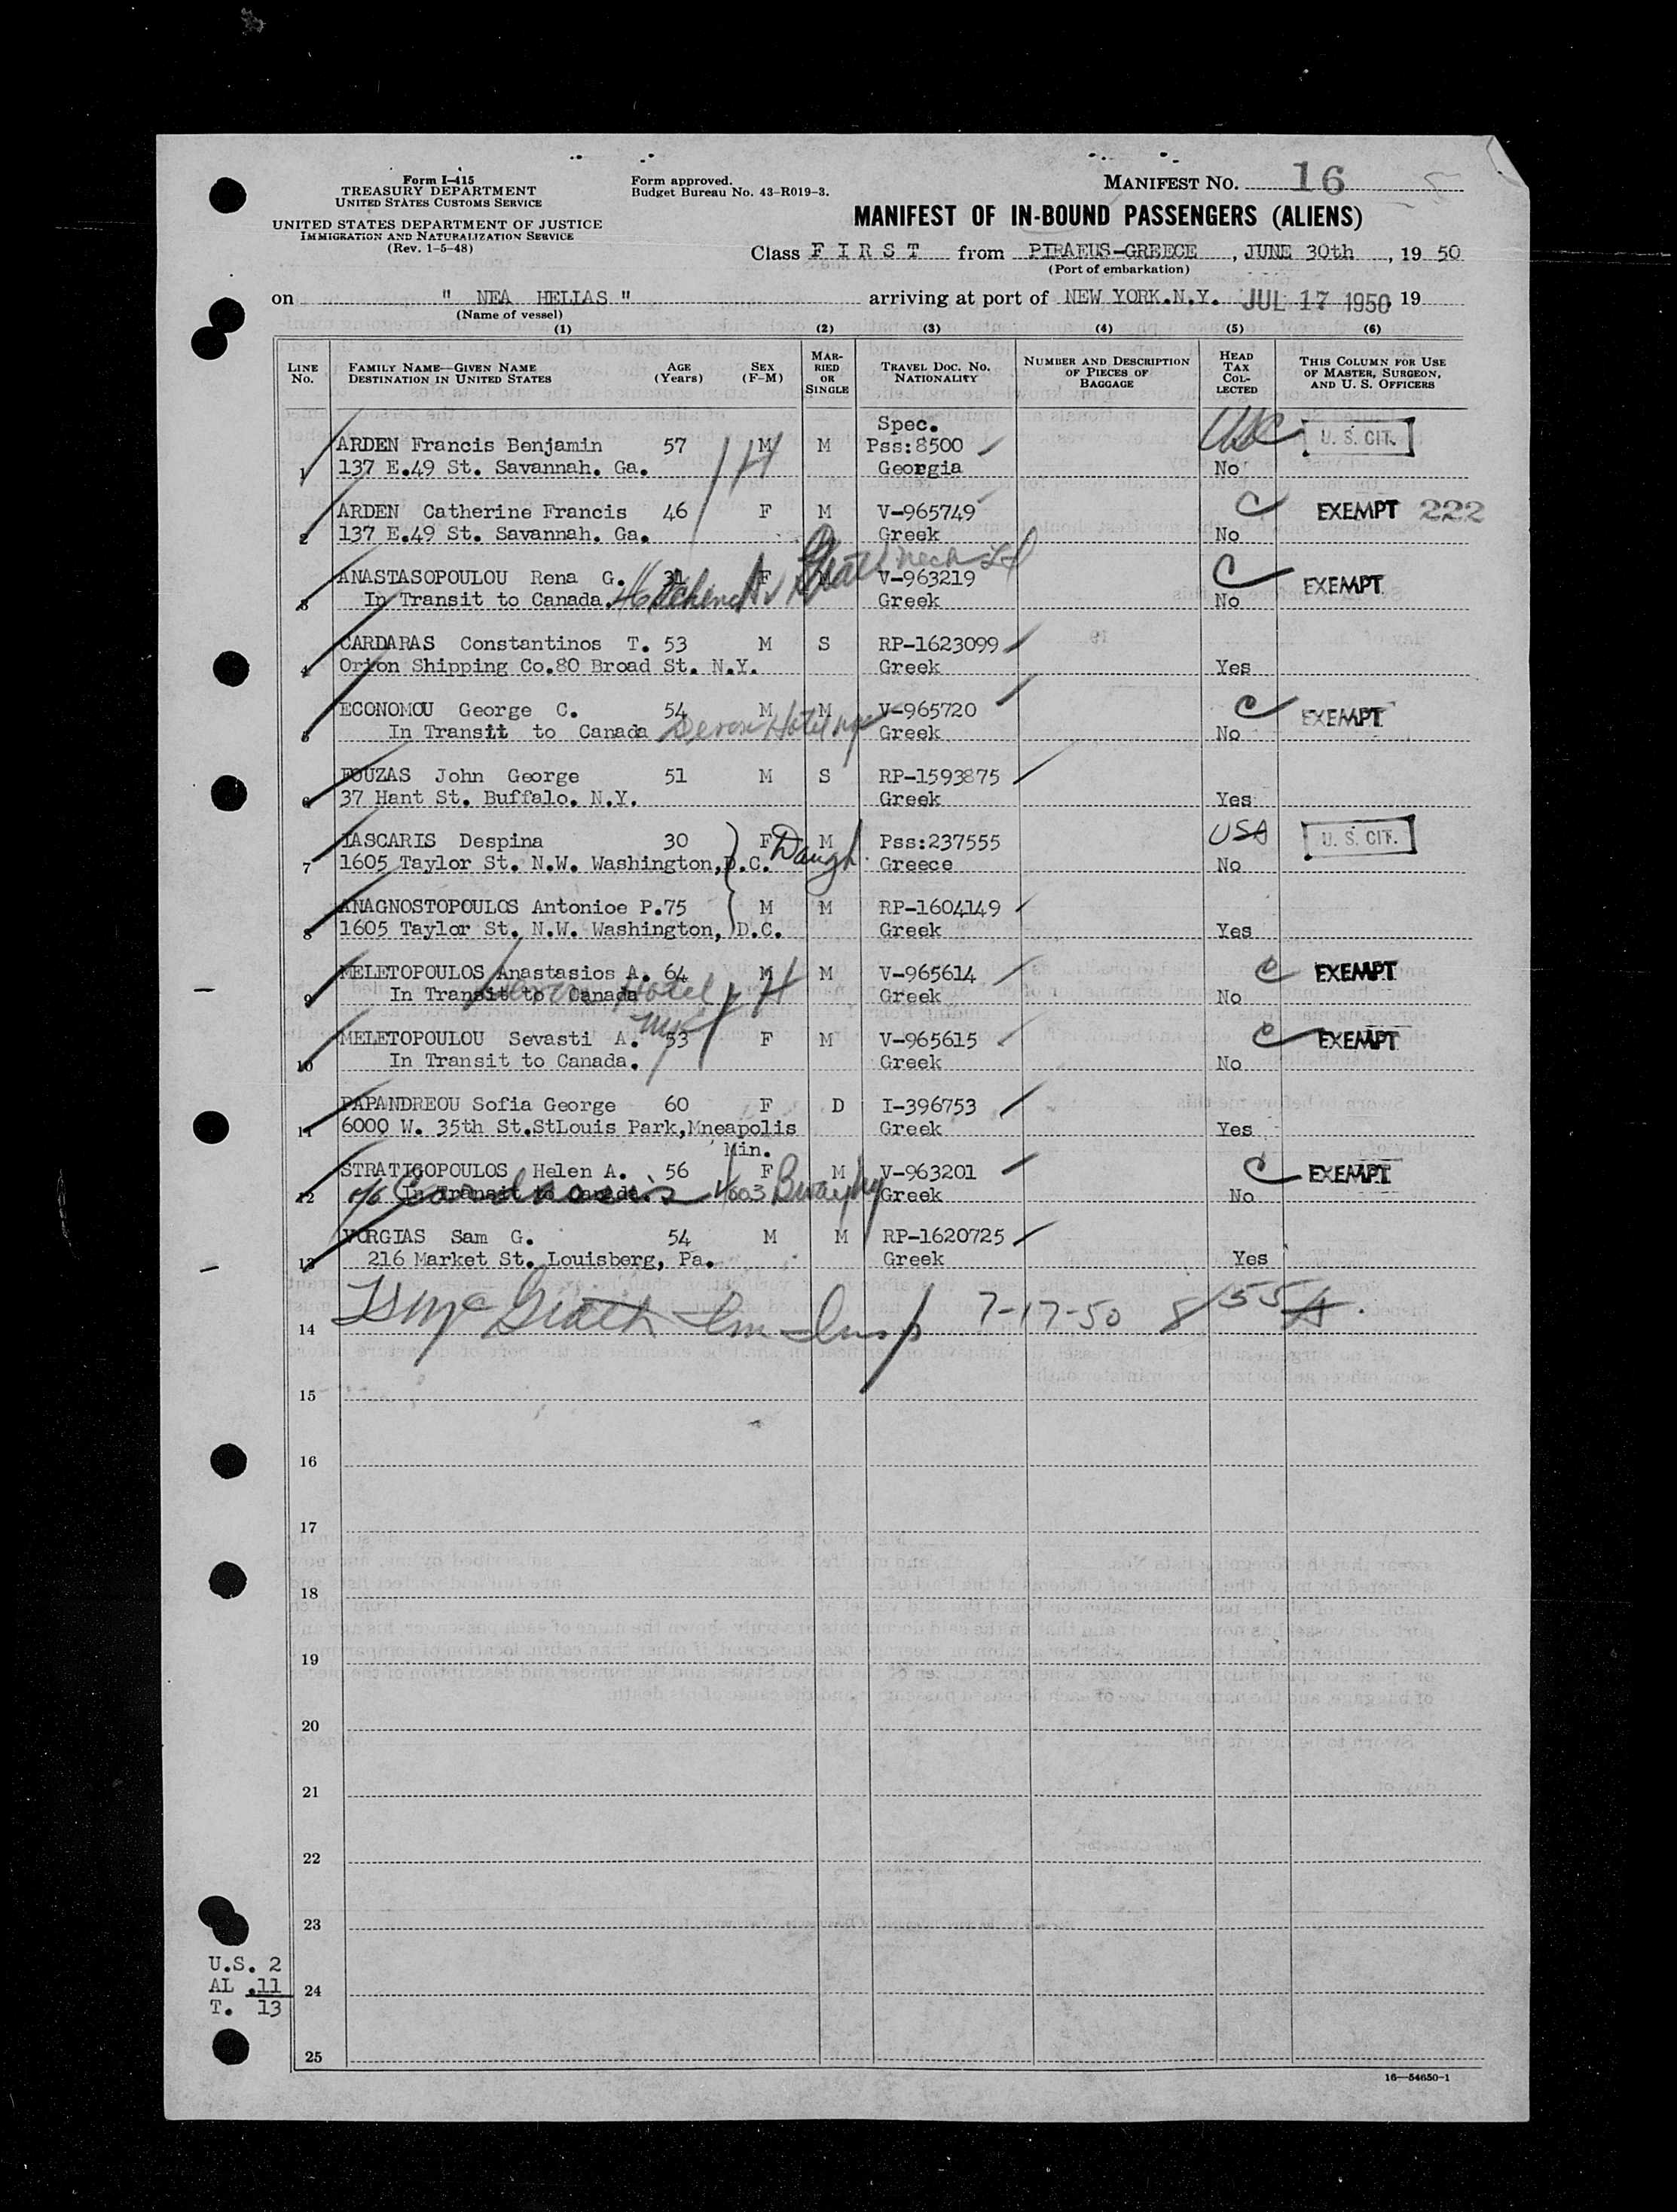 Form I-415
TREASURY DEPARTMENT
UNITED STATES CUSTOMS SERVICE
UNITED STATES DEPARTMENT OF JUSTICE
IMMIGRATION AND NATURALIZATION SERVICE
(Rev. 1-5-48)
Form approved.
Budget Bureau No. 43-R019-3.
MANIFEST NO. 16
MANIFEST OF IN-BOUND PASSENGERS (ALIENS)
Class F I R S T from PIRAEUS-GREECE, JUNE 30th, 19 50
(Port of embarkation)
on " NEA HELIAS " arriving at port of NEW YORK.N.Y. JUL 17 1950, 19
(Name of vessel)
(1) (2) (3) (4) (5) (6)
LINE No. FAMILY NAME—GIVEN NAME DESTINATION IN UNITED STATES AGE (Years) SEX (F-M) MARRIED OR SINGLE TRAVEL DOC. NO. NATIONALITY NUMBER AND DESCRIPTION OF PIECES OF BAGGAGE HEAD TAX COLLECTED THIS COLUMN FOR USE OF MASTER, SURGEON, AND U. S. OFFICERS
Spec.
ARDEN Francis Benjamin 57 M M Pss:8500 USC U. S. CIT.
1 137 E.49 St. Savannah. Ga. Georgia No
ARDEN Catherine Francis 46 F M V-965749 C EXEMPT 222
2 137 E.49 St. Savannah. Ga. Greek No
ANASTASOPOULOU Rena G. 31 F M V-963219 C EXEMPT
3 In Transit to Canada. Great Neck Greek No
CARDARAS Constantinos T. 53 M S RP-1623099
4 Orion Shipping Co.80 Broad St. N.Y. Greek Yes
ECONOMOU George C. 54 M M V-965720 C EXEMPT
5 In Transit to Canada Hotel Greek No
FOUZAS John George 51 M S RP-1593875
6 37 Hant St. Buffalo. N.Y. Greek Yes
IASCARIS Despina 30 F Daugh. M Pss:237555 USA U. S. CIT.
7 1605 Taylor St. N.W. Washington,D.C. Greece No
ANAGNOSTOPOULOS Antonioe P.75 M M RP-1604149
8 1605 Taylor St. N.W. Washington, D.C. Greek Yes
MELETOPOULOS Anastasios A. 64 M M V-965614 C EXEMPT
9 In Transit to Canada Hotel Greek No
MELETOPOULOU Sevasti A. 53 F M V-965615 C EXEMPT
10 In Transit to Canada. Greek No
PAPANDREOU Sofia George 60 F D I-396753
11 6000 W. 35th St.StLouis Park,Mneapolis Greek Yes
Min.
STRATIGOPOULOS Helen A. 56 F M V-963201 C EXEMPT
12 In Transit to Canada. Greek No
VORGIAS Sam G. 54 M M RP-1620725
13 216 Market St. Louisberg, Pa. Greek Yes
14 7-17-50 8/55A.
15
16
17
18
19
20
21
22
23
U.S. 2
AL .11 24
T. 13
25
16—54650-1